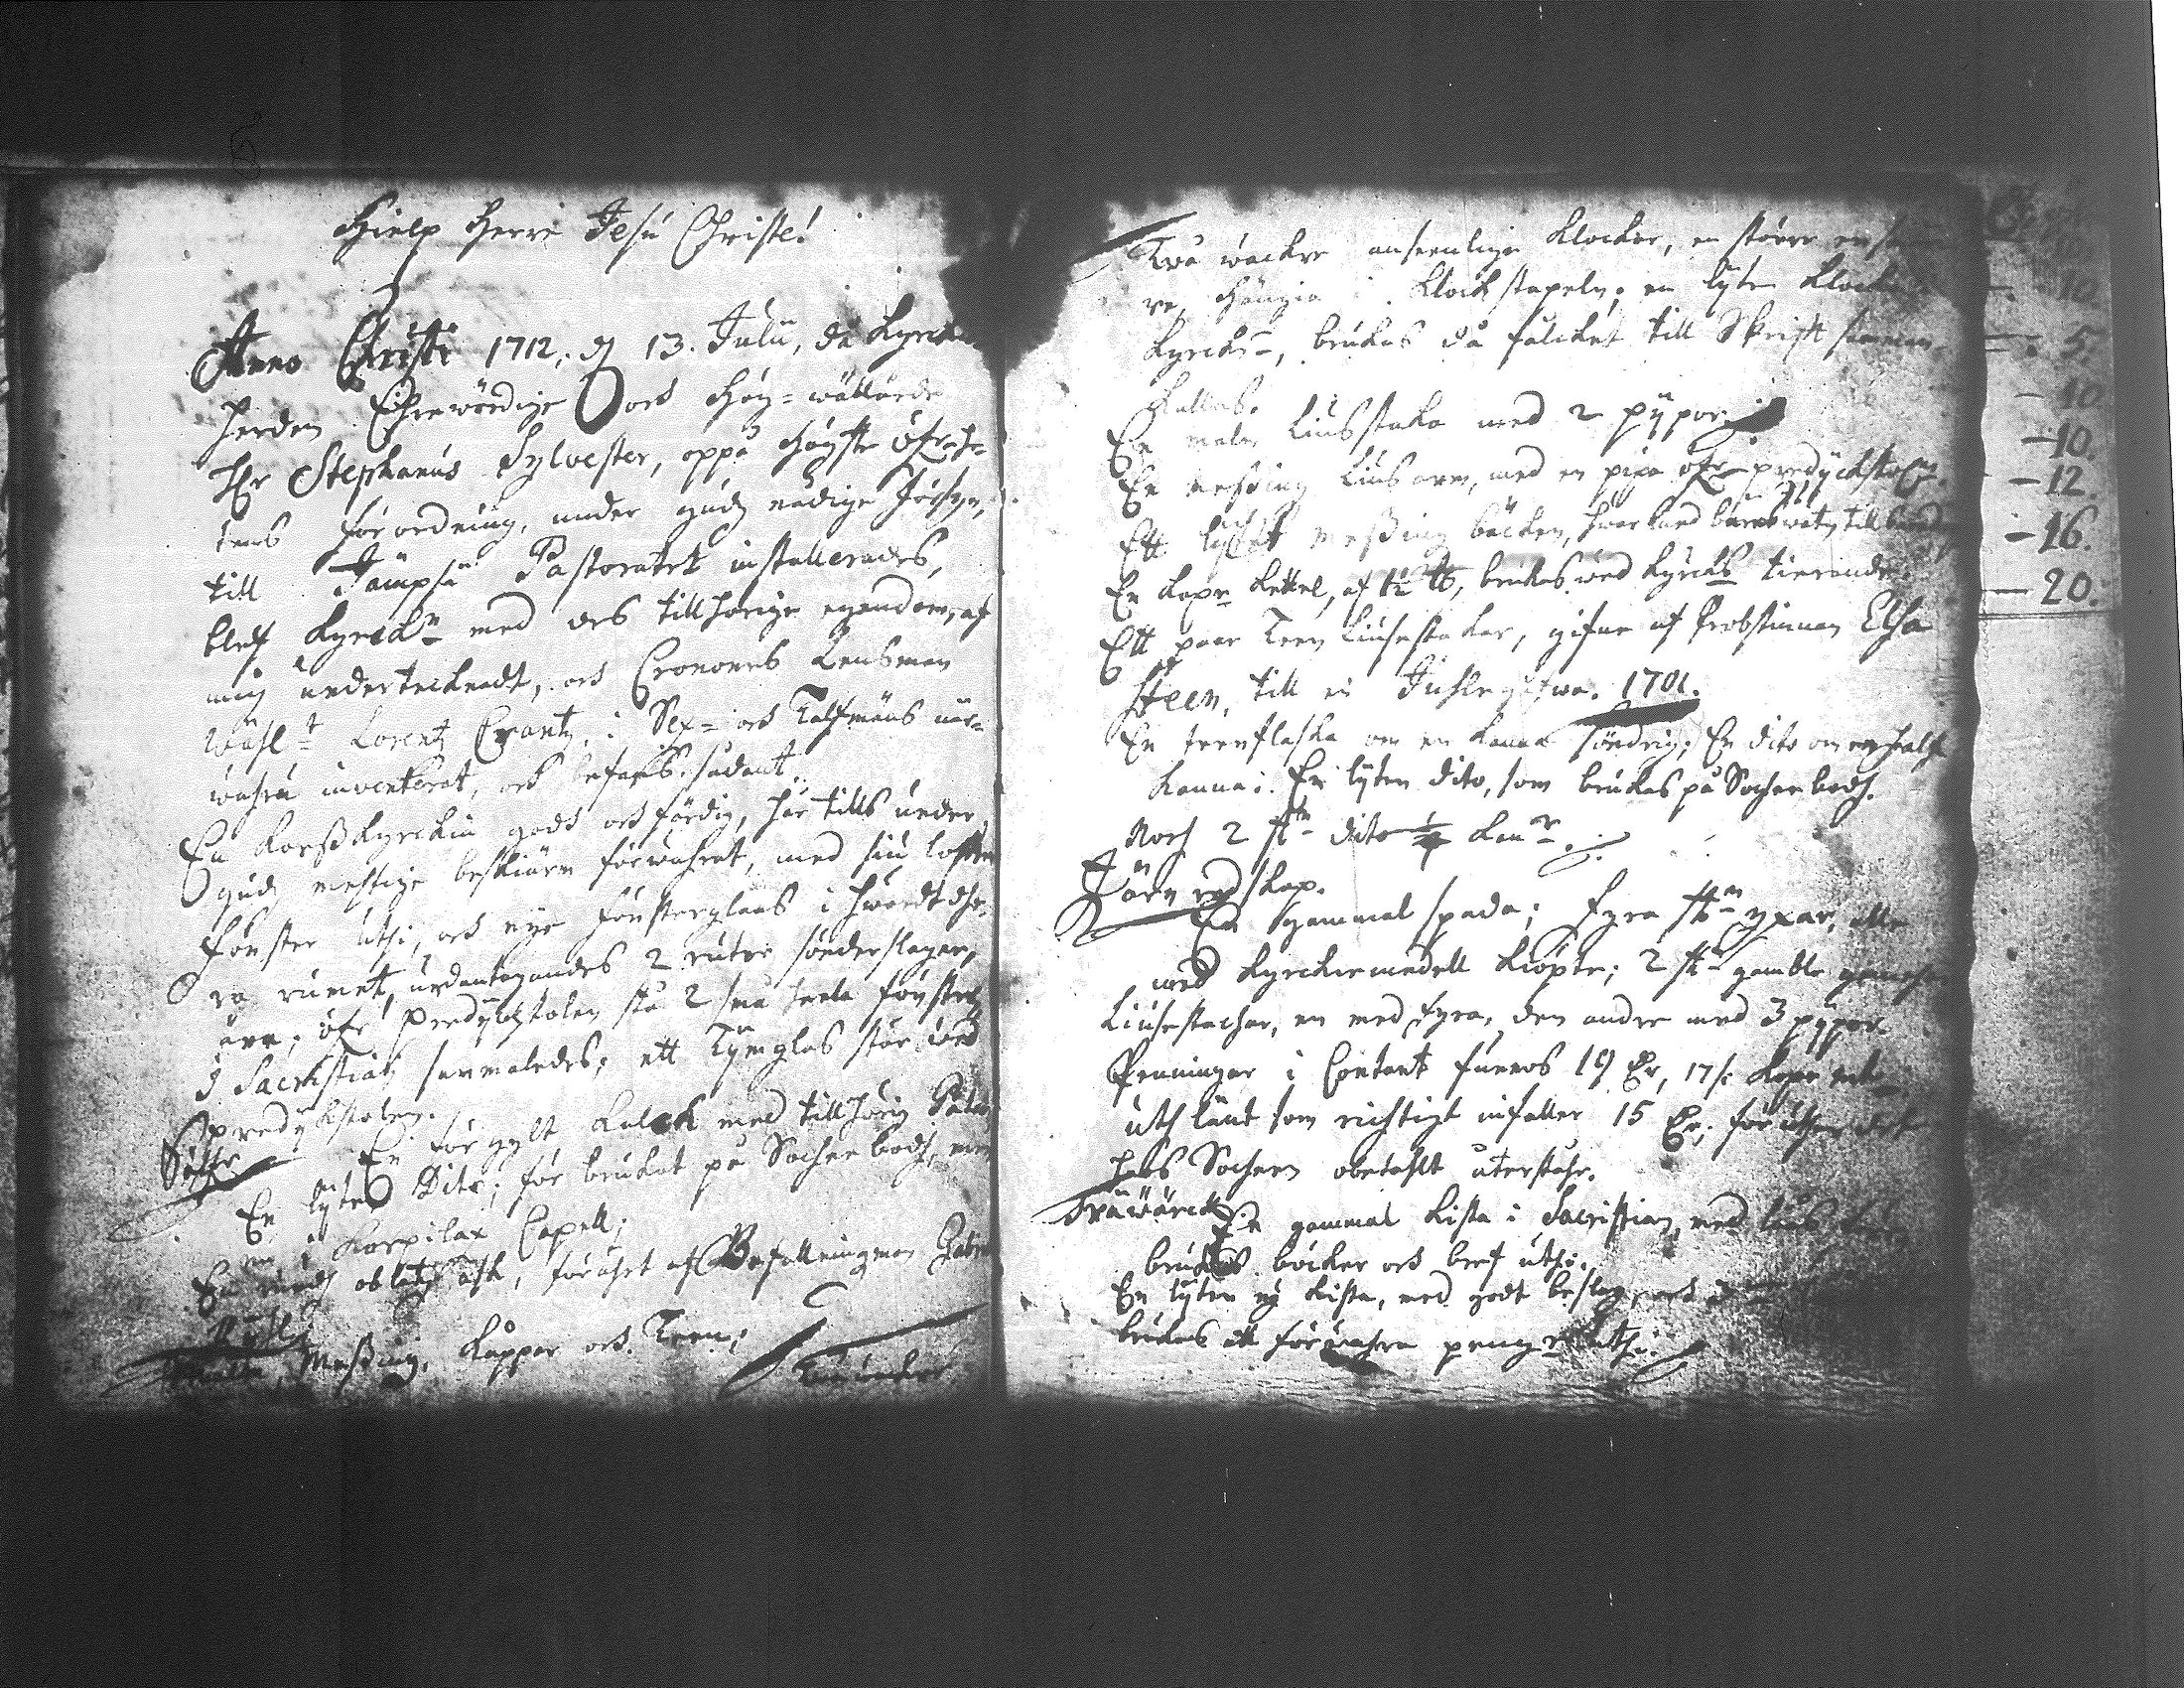 Hielp Herre Jesu Christe!
Anno Christi 1712, dn 13. Julii, då Kyrckio
herden Ehrewördige och Høg-wällärde
Hr Stephanus Sylvester, oppå höghste öfrhe-
tens förordning, under gudz nådige försyn,
till Jämpsä Pastoratet installerades,
blef Kyrckn med des tillhörige egendom, af
mig undertecknadt, och Cronones Lensman
Wähl.t Lorentz Crantz, i Sex- och Tolfmäns när-
wahru inventerat, och befans sådant.
En Korßkyrckia godt och färdig, här tills under
gudz mechtige beskiärm förwahrat, med sin
fönster uthi, och nye fönsterglaas i hwardt
ra rumet, undantagandes 2 rutor sönderslagen,
ära; öfr predijkstolen stå 2 små heela fönster,
i Sacristian sammaledes; ett Tijmglas står wed
predijkstolen.
Sölfr
En förgylt Kalck med tillhörig Paten
En lyten Dito; för brukat på Sochnebodh, men
nu i Korpilax Capell;
En oblat ask, förährt af Befallningman
Meßing, Koppar och Teen;
Två wackre anseenlige Klockor, en större en
re, hängia i Klockstapeln; en lyten Klocka
Kyrckn, brukas då fålcket till Skrifft samman-
kallas.
En malm liusstaka med 2 pijpor
En meßing liusarm, med en pipa öfr predijckstoln.
Ett lijtet meßing bäcken, hwar med barns watn till
En kopr kettel, af 1½ ℔, brukas wed Kyrcks tierande.
Ett paar Teen liusestakar, gifne af Probstinnan Elsa
Steen, till en Juhlegåfwa. 1701.
En teenflaska om en kanna söndrig; En dito om en half
kanna: En lyten dito, som brukas på Sochnebodh.
Noch 2 stn dito kanr.
Järn redskap.
En gammal spada; fyra stn yxar, alle
med Kyrckiemedell kiöpte; 2 stn gamble
Liusestachar, en med fyra, den andre med 3 pypor
Penningar i Contant funnos 19 Dr, 17 s: Kopr
uth länt som richtigt infaller 15 Dr; för uthan det
hoos Sochnen obetahlt återståhr.
Träwärck
En gammal kista i Sacristian, med låås
brukas böcker och bref uthi.
En lyten ny kista, med godt beslag, och
brukas att förwahra pengr uthi.
10
5.
10
-10.
-12.
-16.
-20.